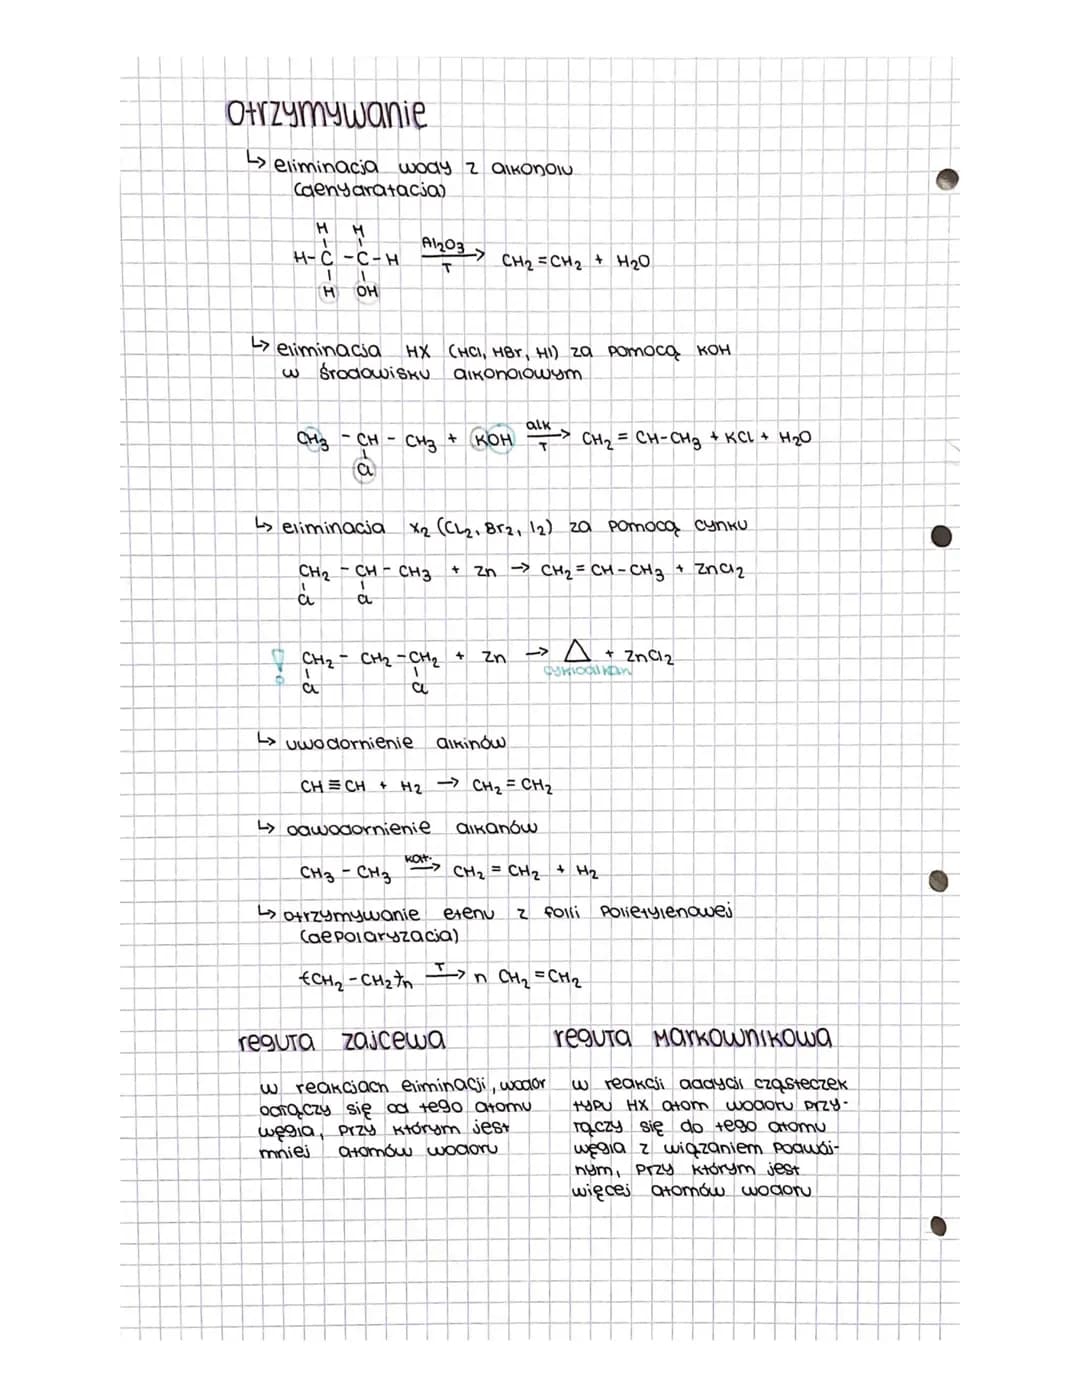 Otrzymywanie
↳ eliminacja wody z alkoholu
(dehydratacja)
H H
H-C-C-H Al₂O₃ T → CH₂=CH₂ + H₂O
H OH
↳ eliminacja HX (HCl, HBr, HI) za pomocą KOH
w środowisku alkoholowym
CH₃ - CH - CH₃ + KOH alk T → CH₂ = CH-CH₃ + KCl + H₂O
Cl
↳ eliminacja X₂ (Cl₂, Br₂, I₂) za pomocą cynku
CH₂ - CH - CH₃ + Zn → CH₂ = CH-CH₃ + ZnCl₂
Cl Cl
! CH₂ - CH₂ - CH₂ + Zn → △ + ZnCl₂
cykloalkan
Cl Cl
↳ uwodornienie alkinów
CH≡CH + H₂ → CH₂ = CH₂
↳ odwodornienie alkanów
CH₃ - CH₃ kat. → CH₂ = CH₂ + H₂
↳ otrzymywanie etenu z folii polietylenowej
(depolaryzacja)
{CH₂ - CH₂}n T → n CH₂ = CH₂
reguła zajcewa
w reakcjach eliminacji, wodór
odłączy się od tego atomu
węgla, przy którym jest
mniej atomów wodoru
reguła Markownikowa
w reakcji addycji cząsteczek
typu HX atom wodoru przy-
łączy się do tego atomu
węgla z wiązaniem podwój-
nym, przy którym jest
więcej atomów wodoru